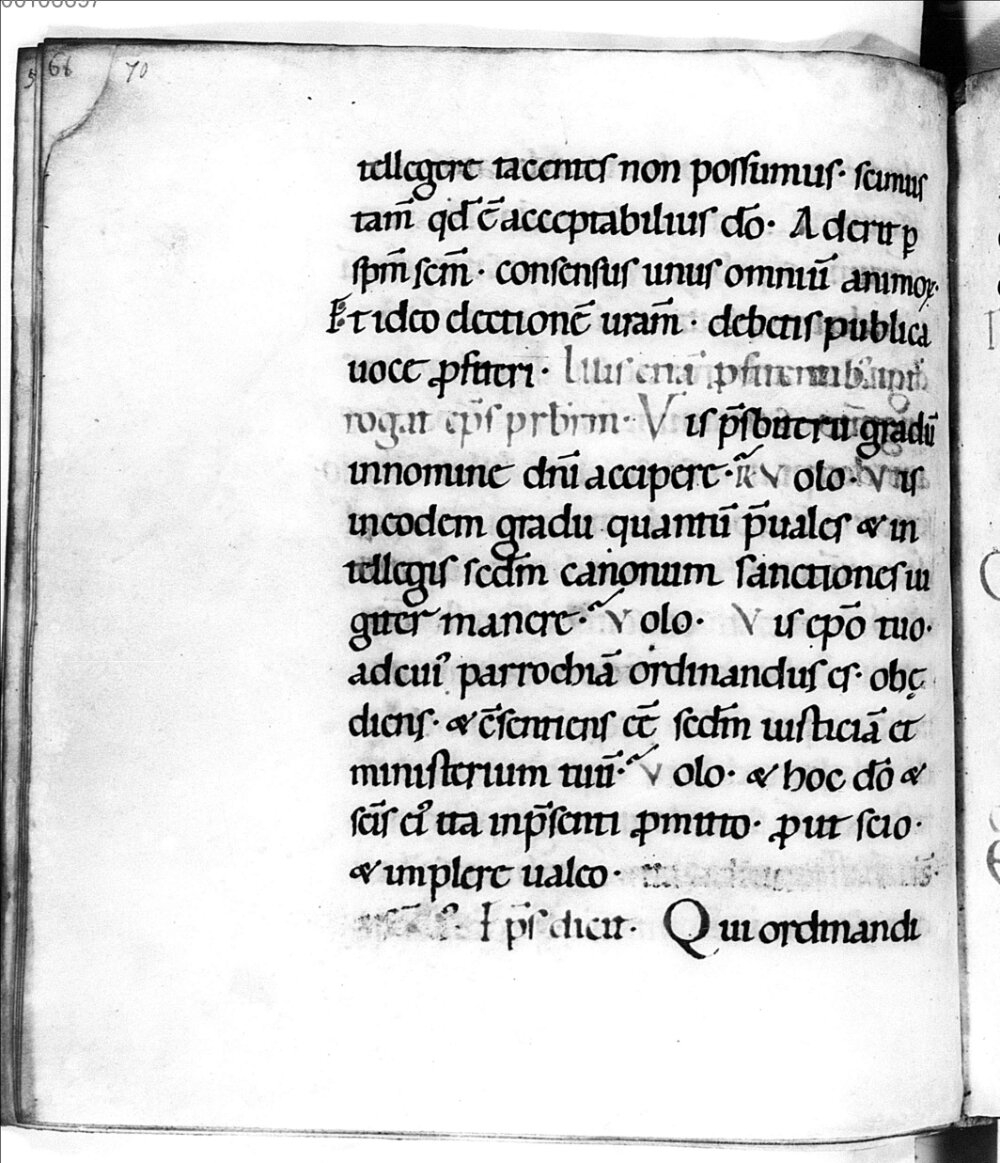 66 70
tellegere tacentes non possumus· scimus
tam̄ qđ ē acceptabilius dō· Aderit ꝑ
sp̄m sc̄m· consensus unus omniū animoꝝ·
Et ideo electionē ur̄am· debetis publica
uoce ꝓfiteri·
rogat ep̄s prbr̄m· Vis p̄sbiterii gradū
in nomine dn̄i accipere· R̄ Volo· Vis
in eodem gradu quantū p̄uales & in
tellegis secdm̄ canonum sanctiones iu
giter manere· Volo· Vis ep̄o tuo·
ad cui᾽ parrochiā ordinandus es· obę
diens· & c̄sentiens eē secdm̄ iusticiā et
ministerium tuū· Volo· & hoc dō &
sc̄is ei᾽ ita in p̄senti ꝓmitto· ꝓut scio·
& implere ualeo·
Ip̄s dicit· Qui ordinandi